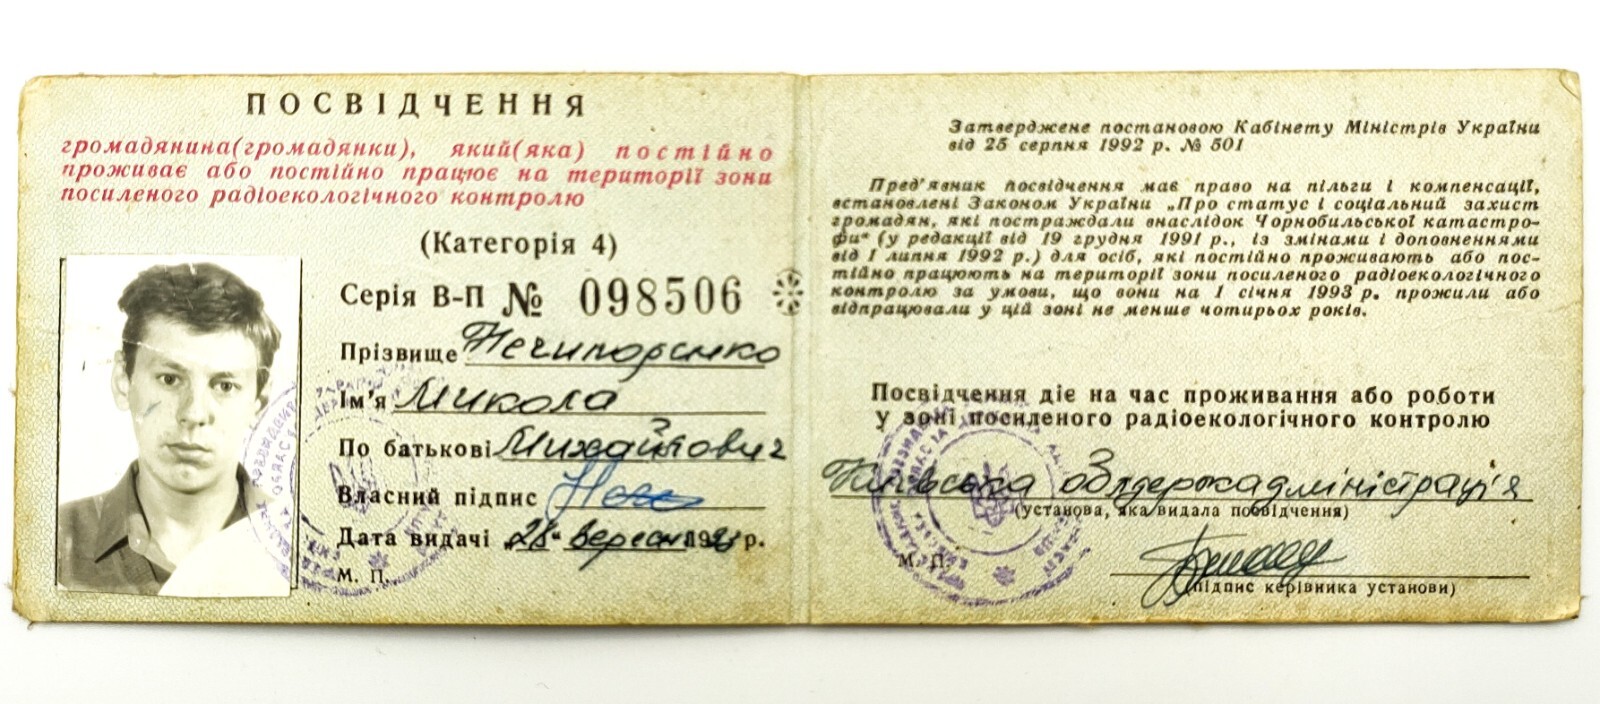 ПОСВІДЧЕННЯ
громадянина(громадянки), який(яка) постійно
проживає або постійно працює на території зони
посиленого радіоекологічного контролю
(Категорія 4)
Серія В-П № 098506
Прізвище Нечипоренко
Ім'я Микола
По батькові Михайлович
Власний підпис
Дата видачі „28“ вересня 199 р.
М. П.
Затверджене постановою Кабінету Міністрів України
від 25 серпня 1992 р. № 501
Пред'явник посвідчення має право на пільги і компенсації,
встановлені Законом України „Про статус і соціальний захист
громадян, які постраждали внаслідок Чорнобильської катастро-
фи“ (у редакції від 19 грудня 1991 р., із змінами і доповненнями
від 1 липня 1992 р.) для осіб, які постійно проживають або пос-
тійно працюють на території зони посиленого радіоекологічного
контролю за умови, що вони на 1 січня 1993 р. прожили або
відпрацювали у цій зоні не менше чотирьох років.
Посвідчення діє на час проживання або роботи
у зоні посиленого радіоекологічного контролю
Київська облдержадміністрація
(установа, яка видала посвідчення)
М. П.
(підпис керівника установи)